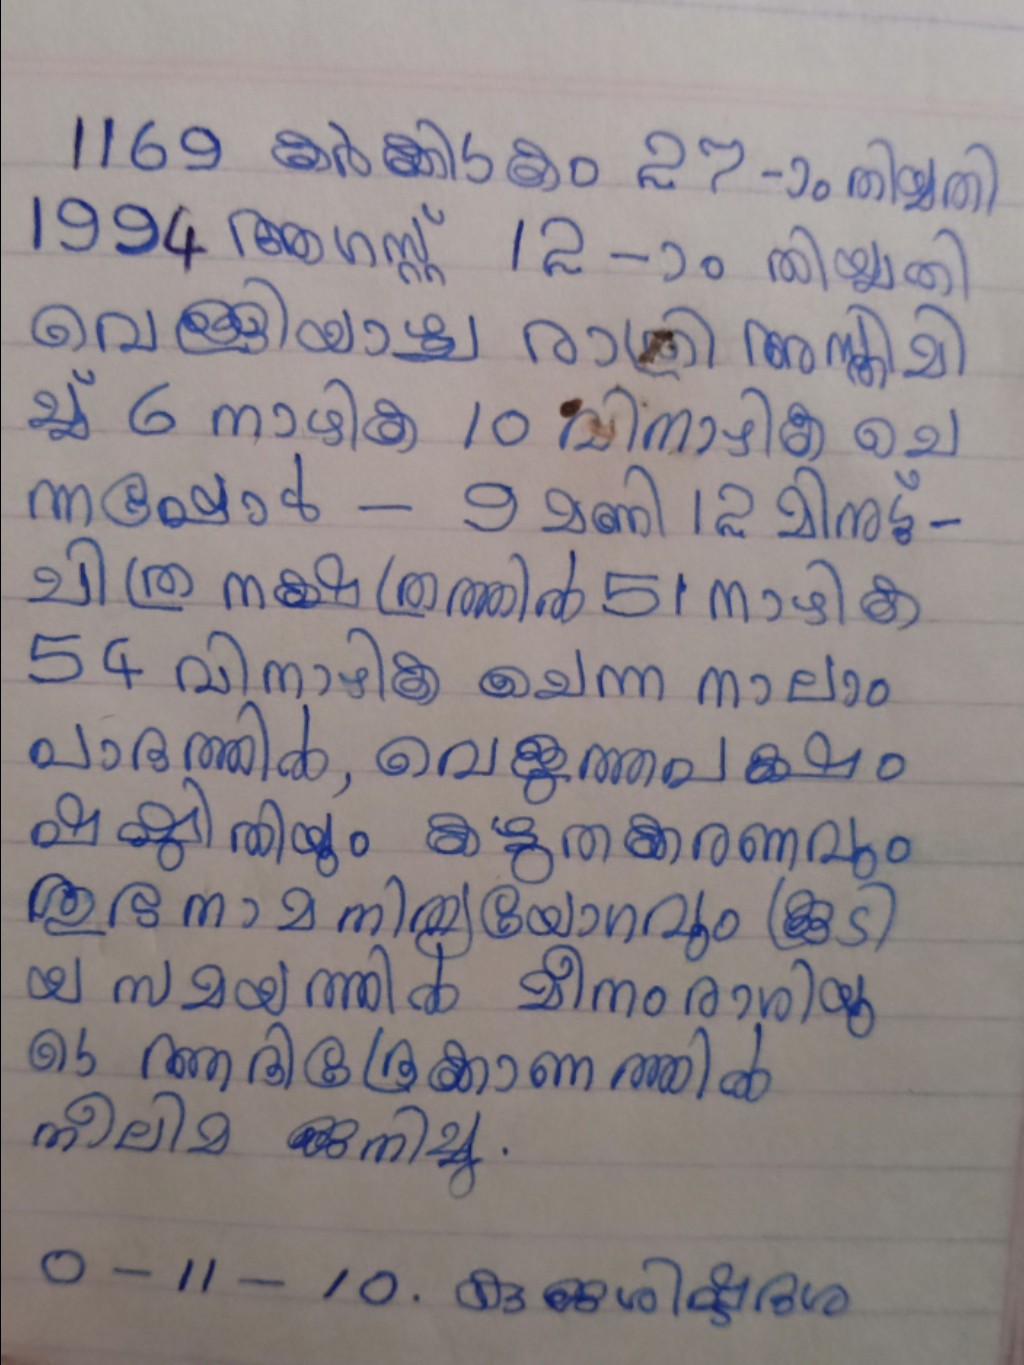 1169 കർക്കിടകം 27-ാം തിയ്യതി
1994 ആഗസ്റ്റ് 12-ാം തിയ്യതി
വെള്ളിയാഴ്ച രാത്രി അസ്തമി
ച്ച് 6 നാഴിക 10 വിനാഴിക ചെ
ന്നപ്പോൾ - 9 മണി 12 മിനുട്ട് -
ചിത്ര നക്ഷത്രത്തിൽ 51 നാഴിക
54 വിനാഴിക ചെന്ന നാലാം
പാദത്തിൽ, വെളുത്തപക്ഷം
ഷഷ്ഠിതിയും കഴുതകരണവും
ശുഭനാമനിത്യയോഗവും കൂടി
യ സമയത്തിൽ മീനംരാശിയു
ടെ ആദിദ്രേക്കാണത്തിൽ
നീലിമ ജനിച്ചു.
0 - 11 - 10. കുജശിഷ്ടദശ